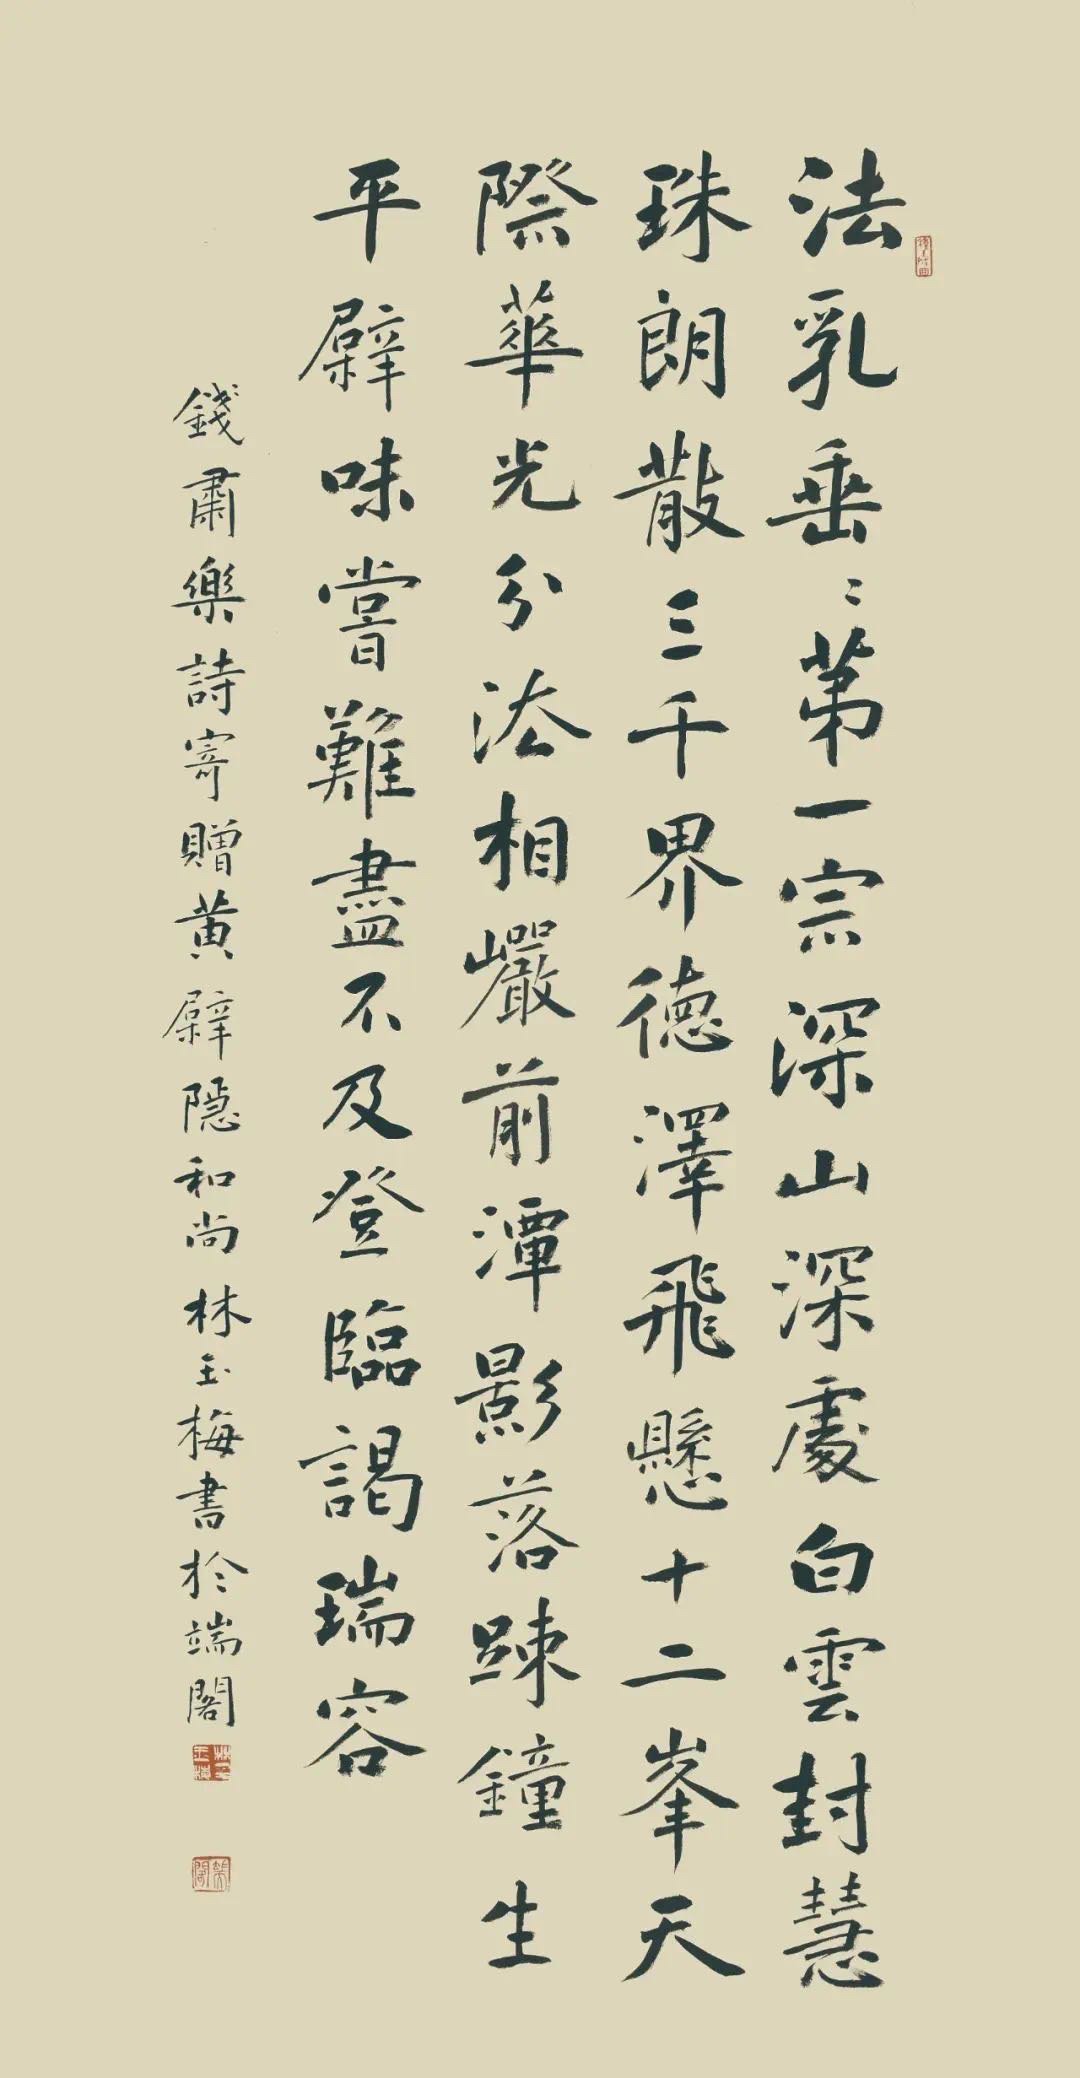 法乳垂〻第一宗深山深處白雲封慧
珠朗散三千界德澤飛懸十二峯天
際華光分法相巖前潭影落踈鐘生
平檗味嘗難盡不及登臨謁瑞容
錢肅樂詩寄贈黃檗隱和尚林玉梅書於端閣